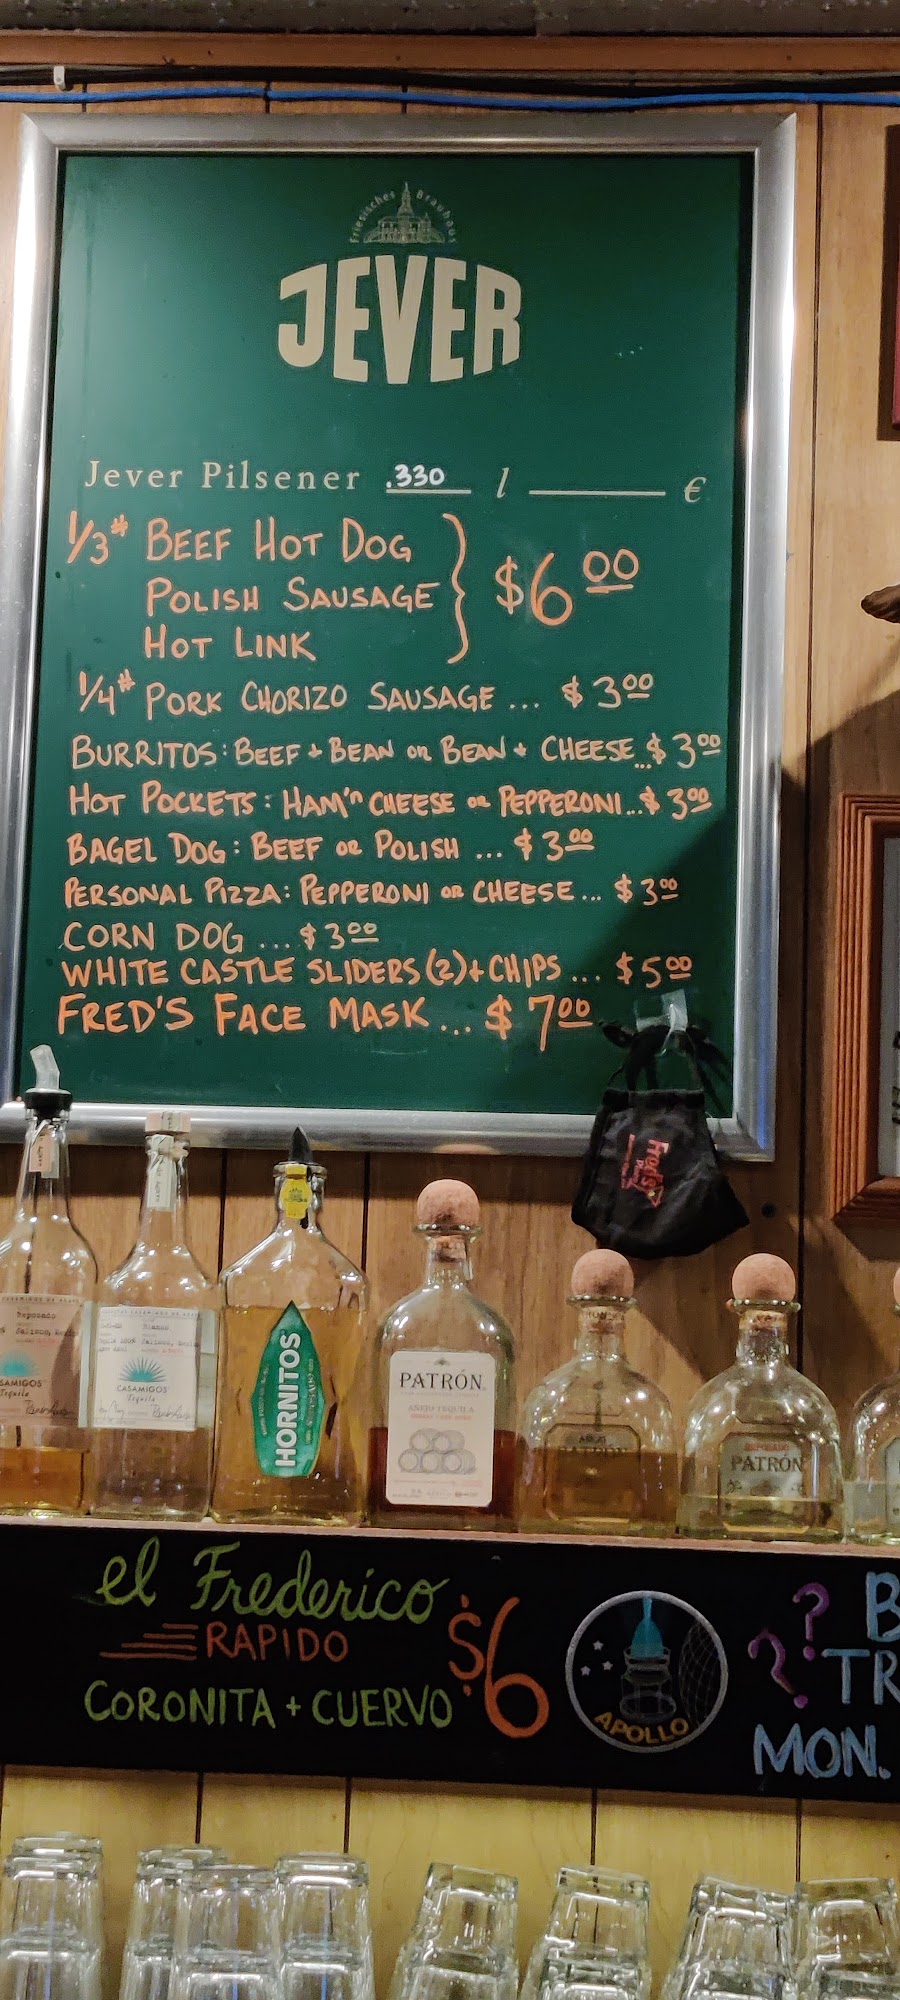 Friesisches Brauhaus
JEVER
Jever Pilsener .330 l €
1/3# BEEF HOT DOG
POLISH SAUSAGE
HOT LINK
$6 00
1/4# PORK CHORIZO SAUSAGE ... $3 00
BURRITOS: BEEF + BEAN OR BEAN + CHEESE ... $3 00
HOT POCKETS: HAM'n CHEESE OR PEPPERONI ... $3 00
BAGEL DOG: BEEF OR POLISH ... $3 00
PERSONAL PIZZA: PEPPERONI OR CHEESE ... $3 00
CORN DOG ... $3 00
WHITE CASTLE SLIDERS (2) + CHIPS ... $5 00
FRED'S FACE MASK ... $7 00
Fred's
Reposado
CASAMIGOS
Tequila
Blanco
CASAMIGOS
Tequila
HORNITOS
REPOSADO
PATRÓN
AÑEJO TEQUILA
AÑEJO
PATRÓN
REPOSADO
PATRÓN
el Frederico
RAPIDO
CORONITA + CUERVO
$6
APOLLO
??
B
TR
MON.